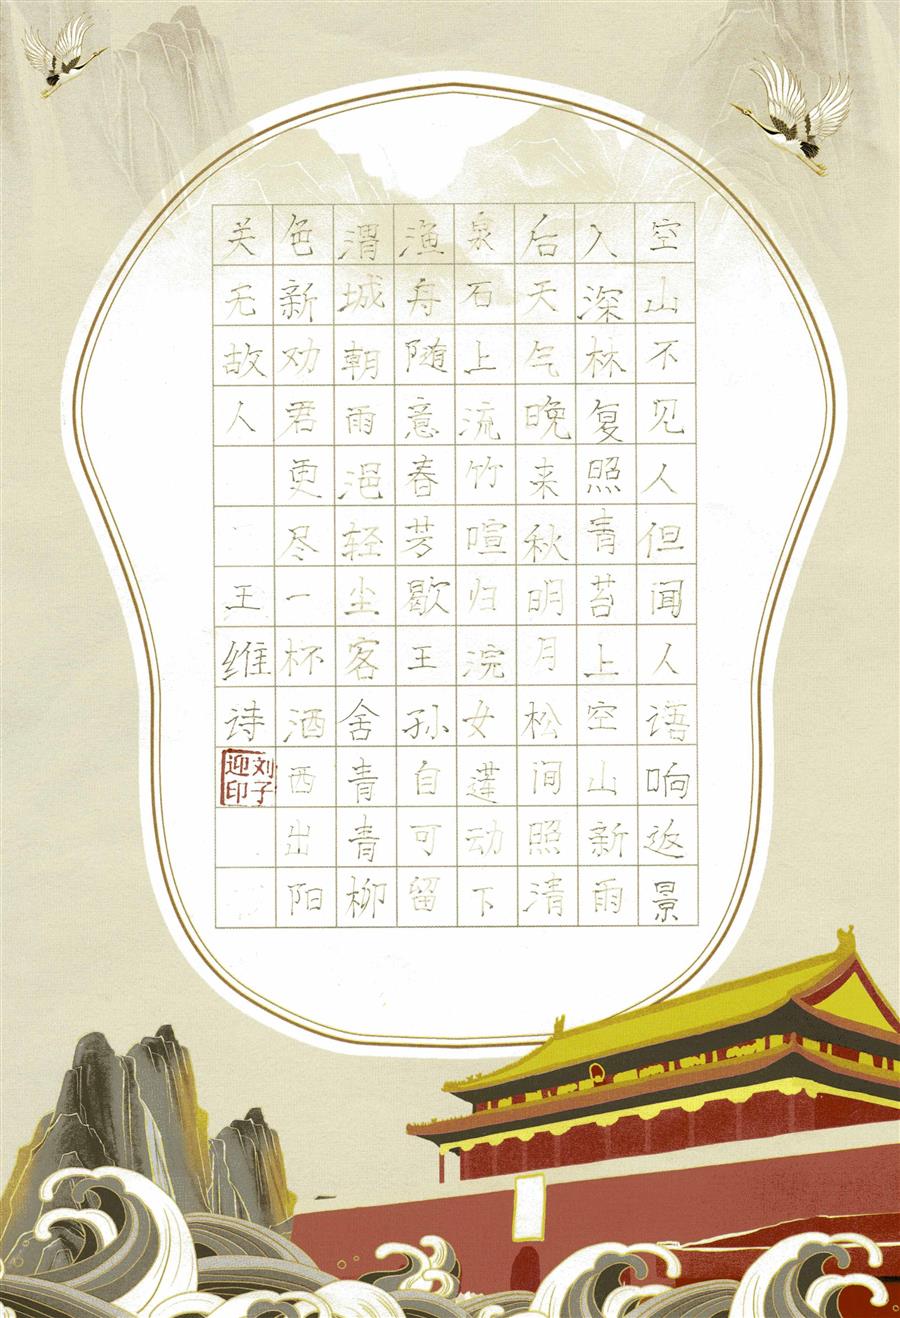 空山不见人但闻人语响返景
入深林复照青苔上空山新雨
后天气晚来秋明月松间照清
泉石上流竹喧归浣女莲动下
渔舟随意春芳歇王孙自可留
渭城朝雨浥轻尘客舍青青柳
色新劝君更尽一杯酒西出阳
关无故人 王维诗
刘子迎印